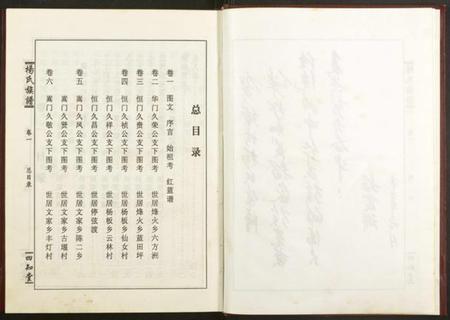 总目录
卷一 图文 序言 始祖考 红蓝谱
卷二 华门久荣公支下图考 世居烽火乡六方洲
卷三 恒门久贵公支下图考 世居烽火乡蓝田坪
卷四 恒门久桢公支下图考 世居杨板乡仙女村
恒门久祥公支下图考 世居杨板乡云林村
恒门久昌公支下图考 世居停弦渡
卷五 嵩门久凤公支下图考 世居文家乡陈二乡
嵩门久贤公支下图考 世居文家乡古堰村
卷六 嵩门久敬公支下图考 世居文家乡丰灯村
杨氏族谱
卷一
总目录
四知堂